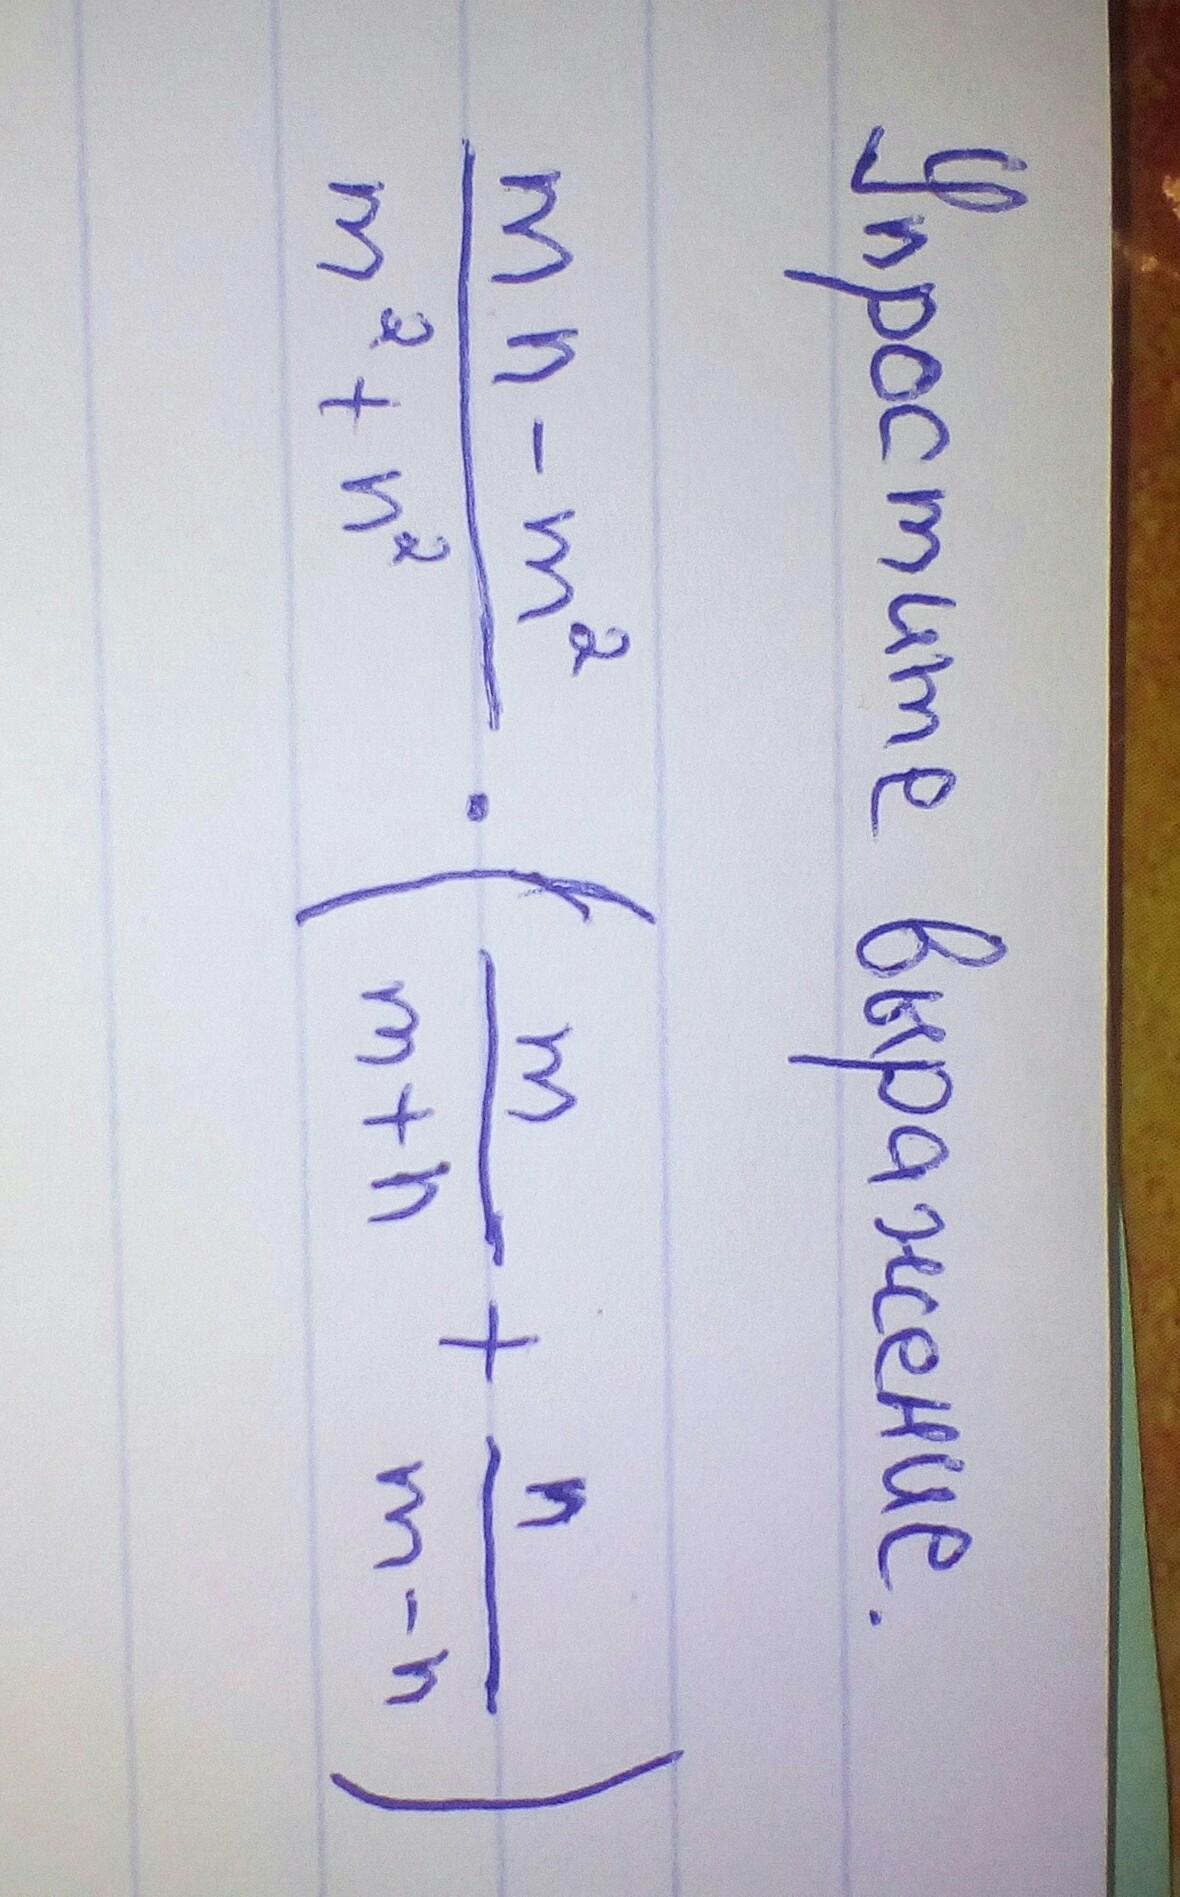 Упростите выражение.
mn - m² / m² + n² · ( m / m + n + n / m - n )